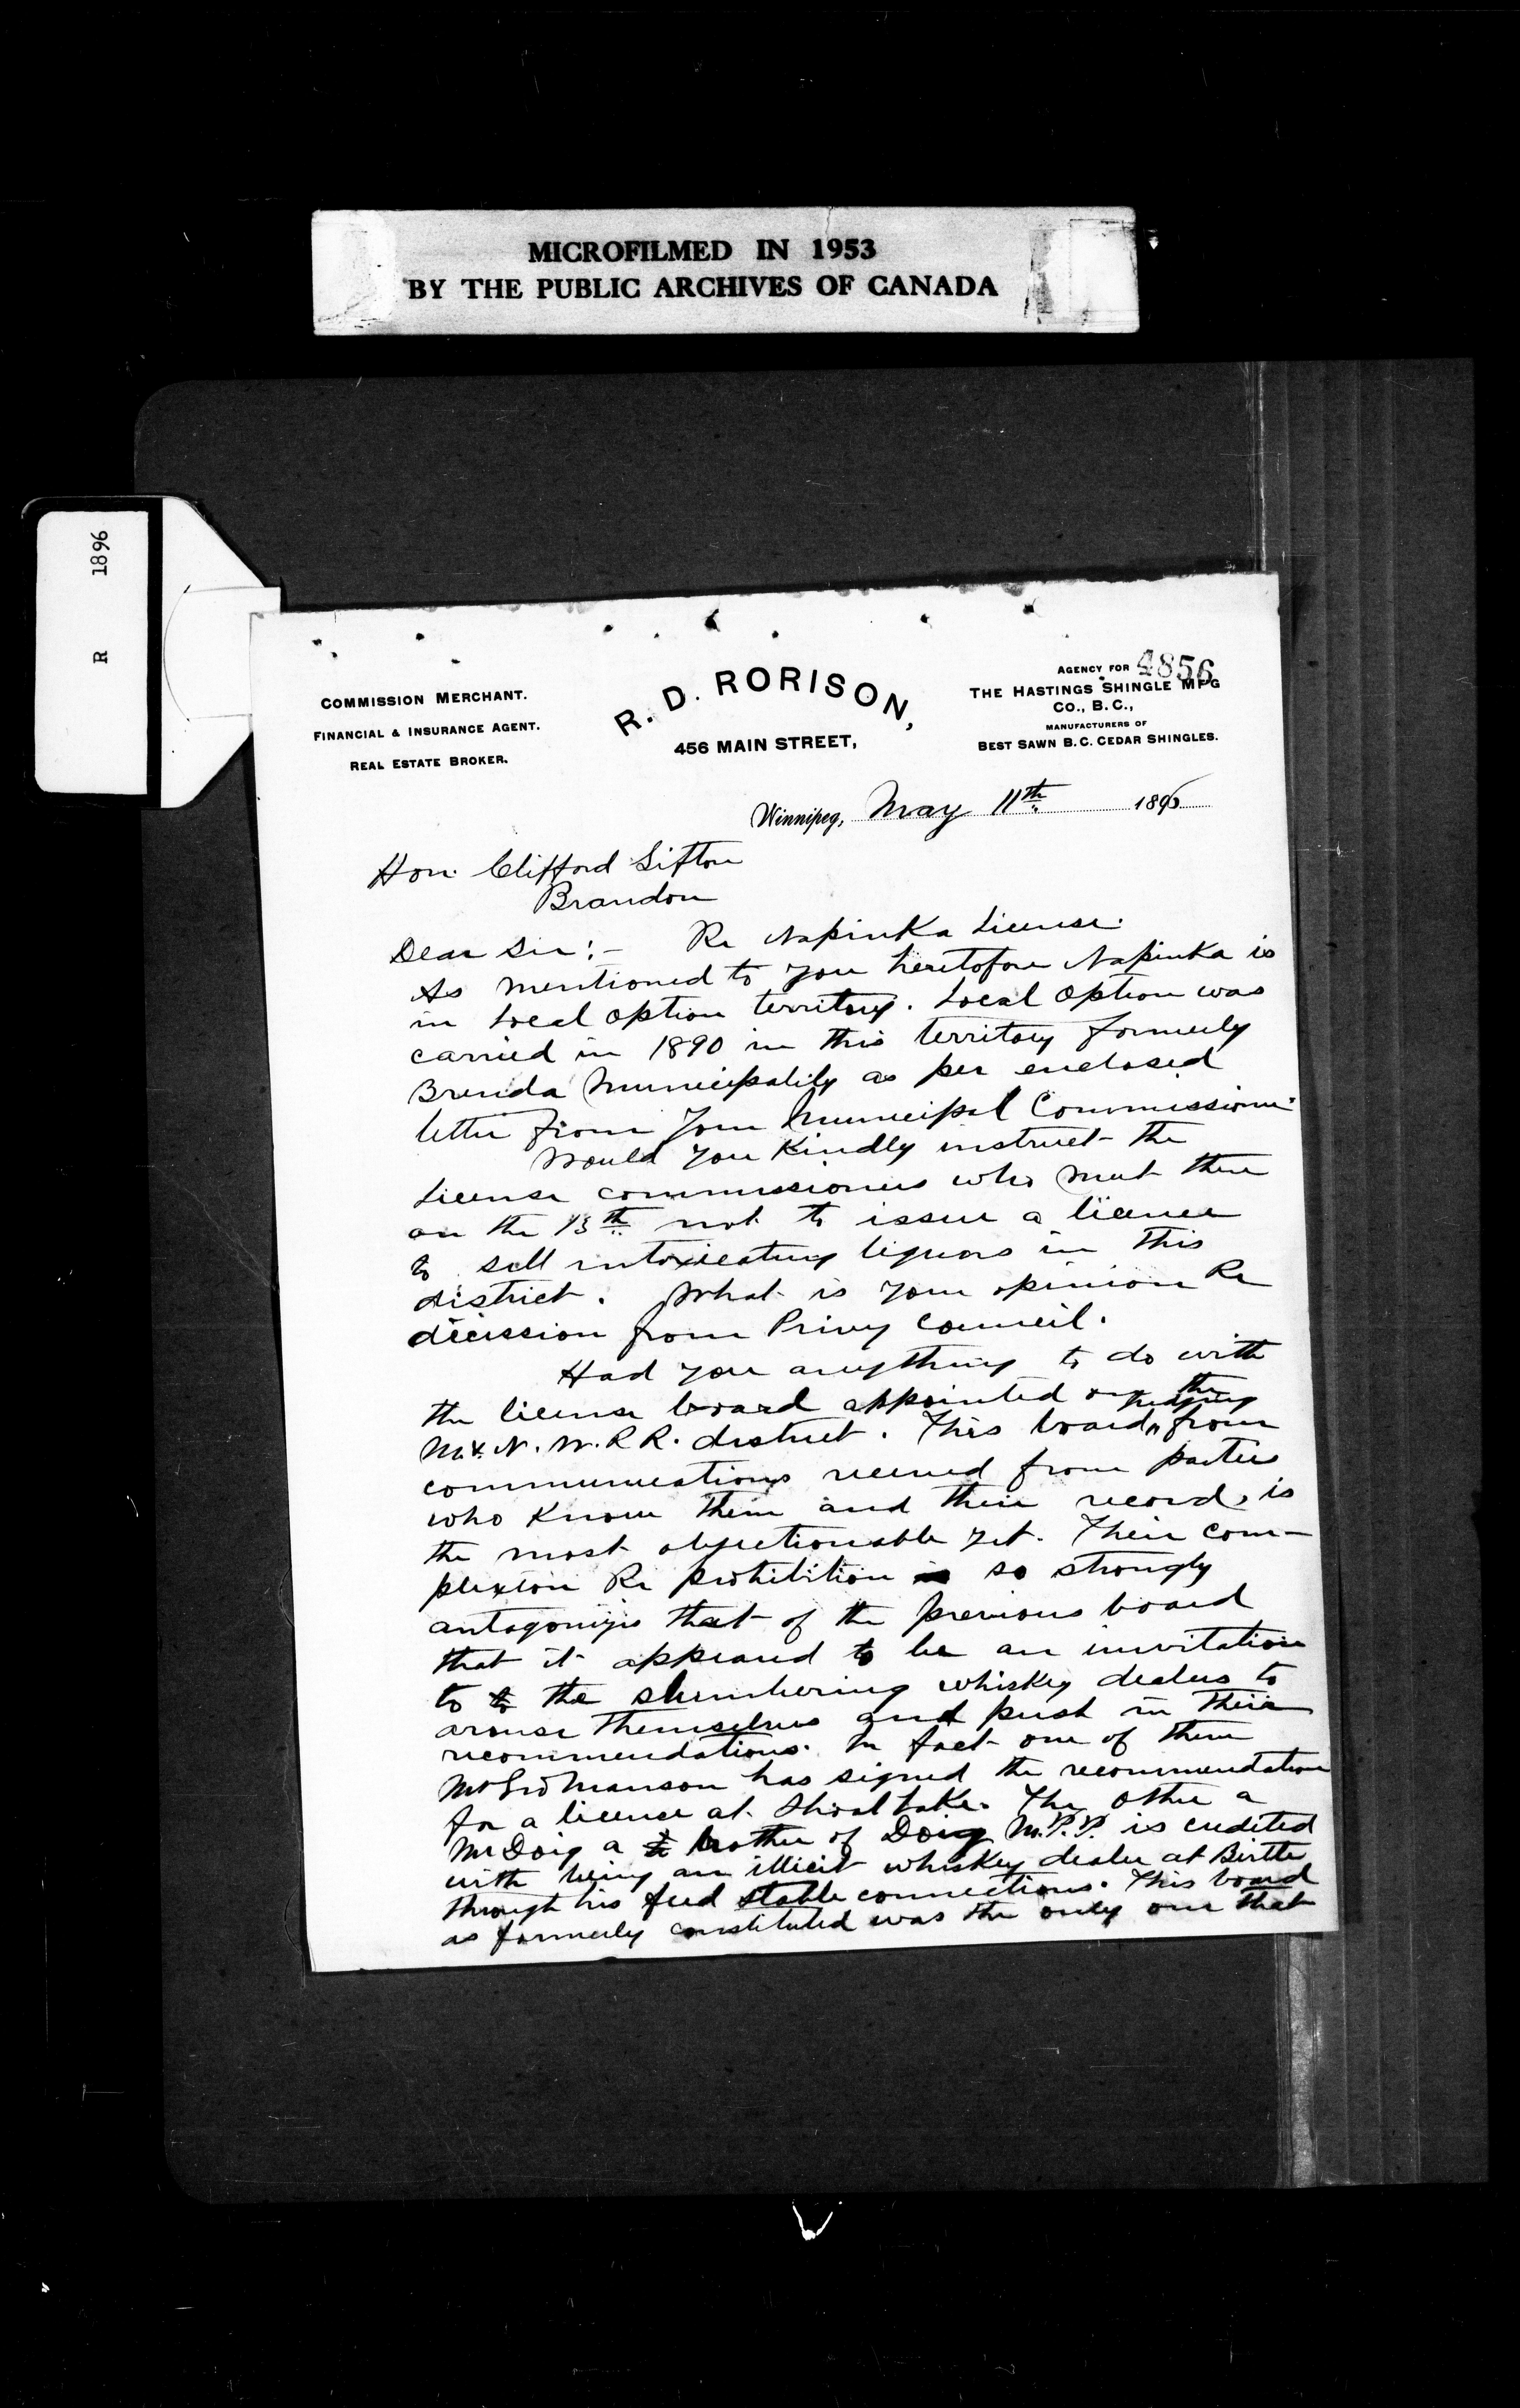 MICROFILMED IN 1953
BY THE PUBLIC ARCHIVES OF CANADA
R 1896
4856
COMMISSION MERCHANT.
FINANCIAL & INSURANCE AGENT.
REAL ESTATE BROKER.
R. D. RORISON,
456 MAIN STREET,
AGENCY FOR
THE HASTINGS SHINGLE MFG
CO., B. C.,
MANUFACTURERS OF
BEST SAWN B. C. CEDAR SHINGLES.
Winnipeg, May 11th 1896
Hon. Clifford Sifton
Brandon
Dear Sir :- Re Napinka License.
As mentioned to you heretofore Napinka is
in Local Option territory. Local Option was
carried in 1890 in this territory formerly
Brenda Municipality as per enclosed
letter from your Municipal Commissioner.
Would you Kindly instruct the
License commissioners who meet there
on the 13th not to issue a licence
to sell intoxicating liquors in this
district. What is your opinion Re
decission from Privy Council.
Had you anything to do with
the license board appointed on the
M. & N. W. R R. district. This board, judging from
communications received from parties
who Know them and their record, is
the most objectionable yet. Their com-
plexion Re prohibition so strongly
antagonizes that of the previous board
that it appeared to be an invitation
to the slumbering whiskey dealers to
arouse themselves and push in their
recommendations. In fact one of them
Mr Geo Manson has signed the recommendation
for a licence at Shoal Lake. The other a
Mr Doig a brother of Doig M.P.P. is credited
with being an illicit whiskey dealer at Birtle
through his feed stable connections. This board
as formerly constituted was the only one that